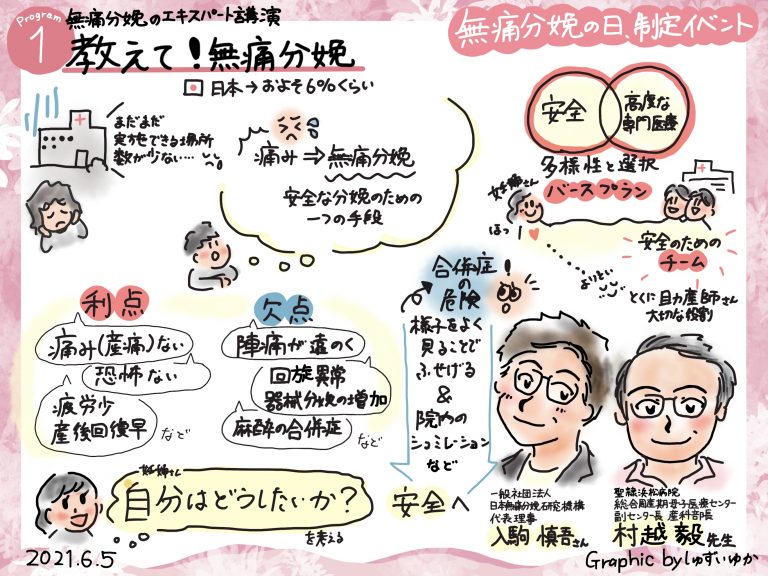 Program
1
無痛分娩のエキスパート講演
教えて!無痛分娩
日本→およそ6%くらい
無痛分娩の日、制定イベント
まだまだ
実施できる場所
数が少ない…
痛み⇒無痛分娩
安全な分娩のための
一つの手段
安全
高度な
専門医療
多様性と選択
バースプラン
妊婦さん
ほっ
安全のための
チーム
よりそい
とくに助産師さん
大切な役割
利点
痛み(産痛)ない
恐怖ない
疲労少
産後回復早
など
欠点
陣痛が遠のく
回旋異常
器械分娩の増加
麻酔の合併症
など
合併症!
の
危険
様子をよく
見ることで
ふせげる
&
院内の
シュミレーション
など
安全へ
妊婦さん
自分はどうしたいか?
を考える
一般社団法人
日本無痛分娩研究機構
代表理事
入駒慎吾さん
聖隷浜松病院
総合周産期母子医療センター
副センター長 産科部長
村越毅先生
2021.6.5
Graphic byしゅずいゆか